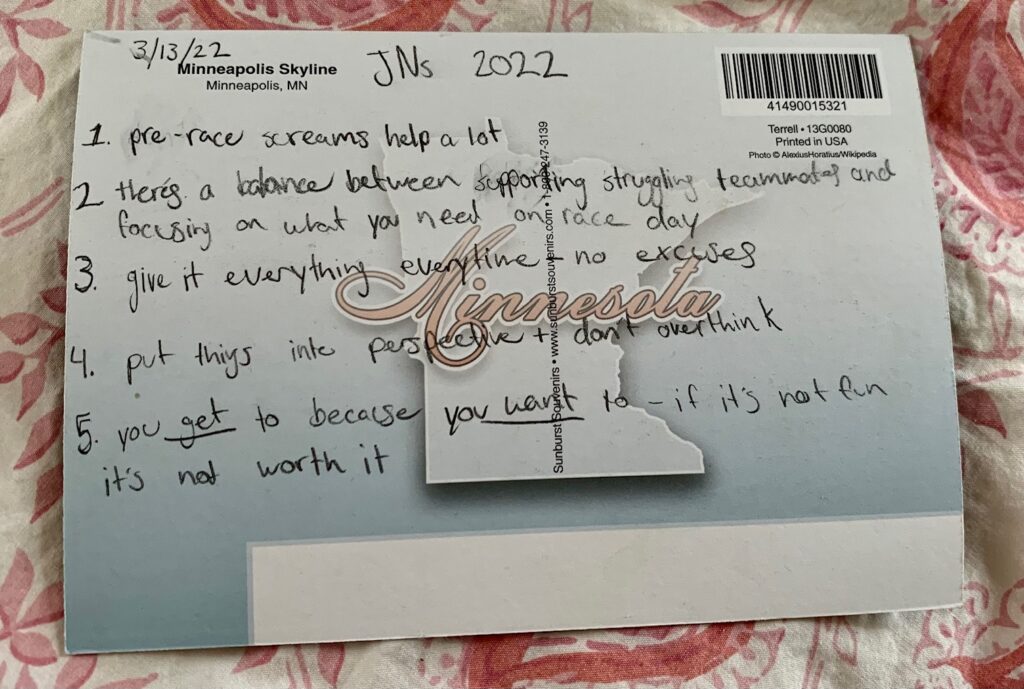 3/13/22
JNs 2022
Minneapolis Skyline
Minneapolis, MN
41490015321
Terrell • 13G0080
Printed in USA
Photo © AlexiusHoratius/Wikipedia
1. pre-race screams help a lot
2 there's a balance between supporting struggling teammates and
focusing on what you need on race day
3. give it everything everytime - no excuses
Minnesota
4. put things into perspective + don't overthink
5. you get to because you want to - if it's not fun
it's not worth it
Sunburst Souvenirs • www.sunburstsouvenirs.com • 247-3139